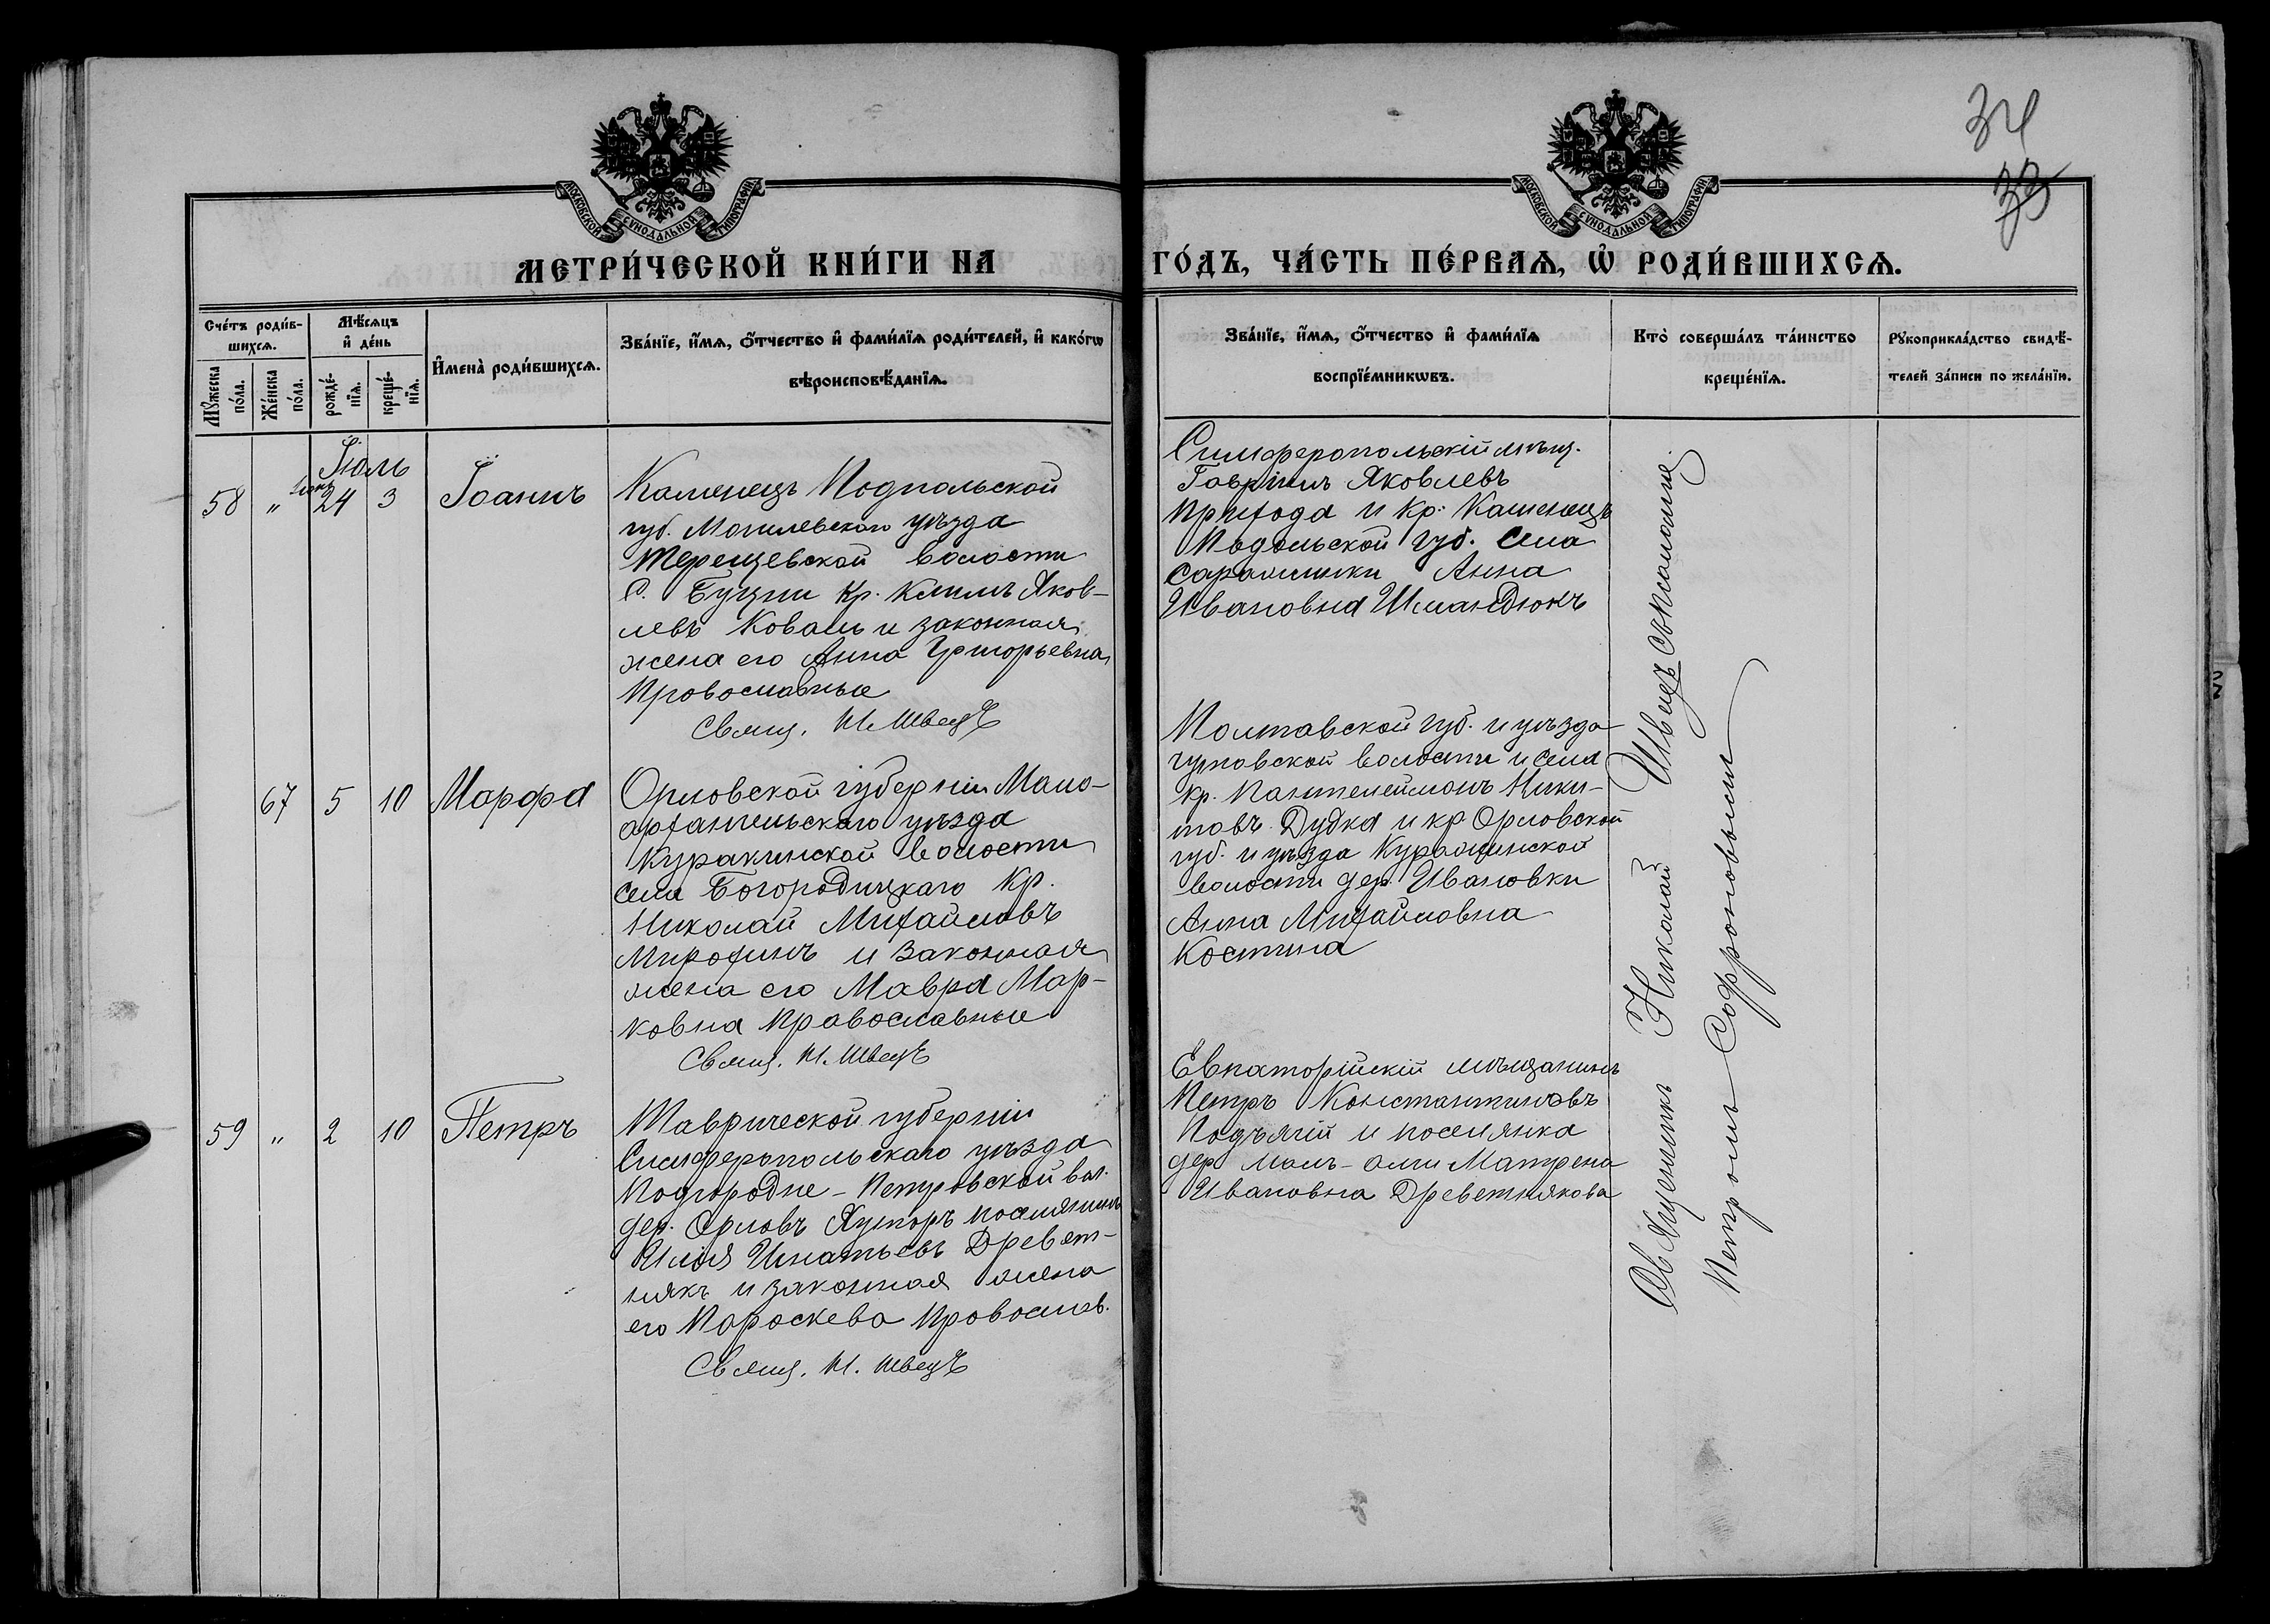 34
33
МОСКОВСКОЙ СУНОДАЛЬНОЙ ТИПОГРАФІИ
МОСКОВСКОЙ СУНОДАЛЬНОЙ ТИПОГРАФІИ
МЕТРИ́ЧЕСКОЙ КНИ́ГИ НА ГО́ДЪ, ЧА́СТЬ ПЕ́РВАѦ, Ѡ҆ РОДИ́ВШИХСѦ.
Сче́тъ роди́в-
шихсѧ.
Мꙋ́жеска по́ла.
Же́нска по́ла.
Мѣ́сѧцъ
и҆ де́нь
рожде́-
нїѧ.
креще́-
нїѧ.
И҆мена̀ роди́вшихсѧ.
Зва́нїе, и҆́мѧ, ѻ҆́тчество и҆ фами́лїѧ роди́телей, и҆ како́гѡ
вѣроисповѣ́данїѧ.
Зва́нїе, и҆́мѧ, ѻ҆́тчество и҆ фами́лїѧ
воспрїе́мникѡвъ.
Кто̀ соверша́лъ та́инство
креще́нїѧ.
Рꙋкоприкла́дство свидѣ́-
телей за́писи по жела́нїю.
Іюль
58 " Іюнь 24 3 Іоаннъ
Каменецъ Подпольской
губ. Могилевскаго уѣзда
Терещевской волости
С. Буцни Кр. Климъ Яков-
левъ Коваль и законная
жена его Анна Григорьевна
Православные
Свящ. Н. Швецъ
Симферопольскій мѣщ.
Гавріилъ Яковлевъ
Приѣода и Кр. Каменецъ
Подольской губ. Села
Анна
Ивановна Шмандюкъ
67 5 10 Марфа
Орловской губерніи Мало-
архангельскаго уѣзда
Куракинской волости
села Богородицкаго Кр.
Николай Михайловъ
Мирохинъ и законная
жена его Мавра Мар-
ковна Православные
Свящ. Н. Швецъ
Полтавской губ. и уѣзда
волости и села
кр. Пантелеймонъ Ники-
товъ Дудка и кр Орловской
губ. и уѣзда Куракинской
волости дер. Ивановки
Анна Михайловна
Костина
59 " 2 10 Петръ
Таврической губерніи
Симферопольскаго уѣзда
Подгородне-Петровской вол.
дер. Орловъ Хуторъ поселянинъ
Илія Игнатьевъ Древет-
някъ и законная жена
его Параскева Православ.
Свящ. Н. Швецъ
Евпаторійскій мѣщанинъ
Петръ Константиновъ
Подъячій и поселянка
дер Матрена
Ивановна Древетнякова
Священникъ Николай Швецъ съ псаломщ.
Петромъ Софроновымъ